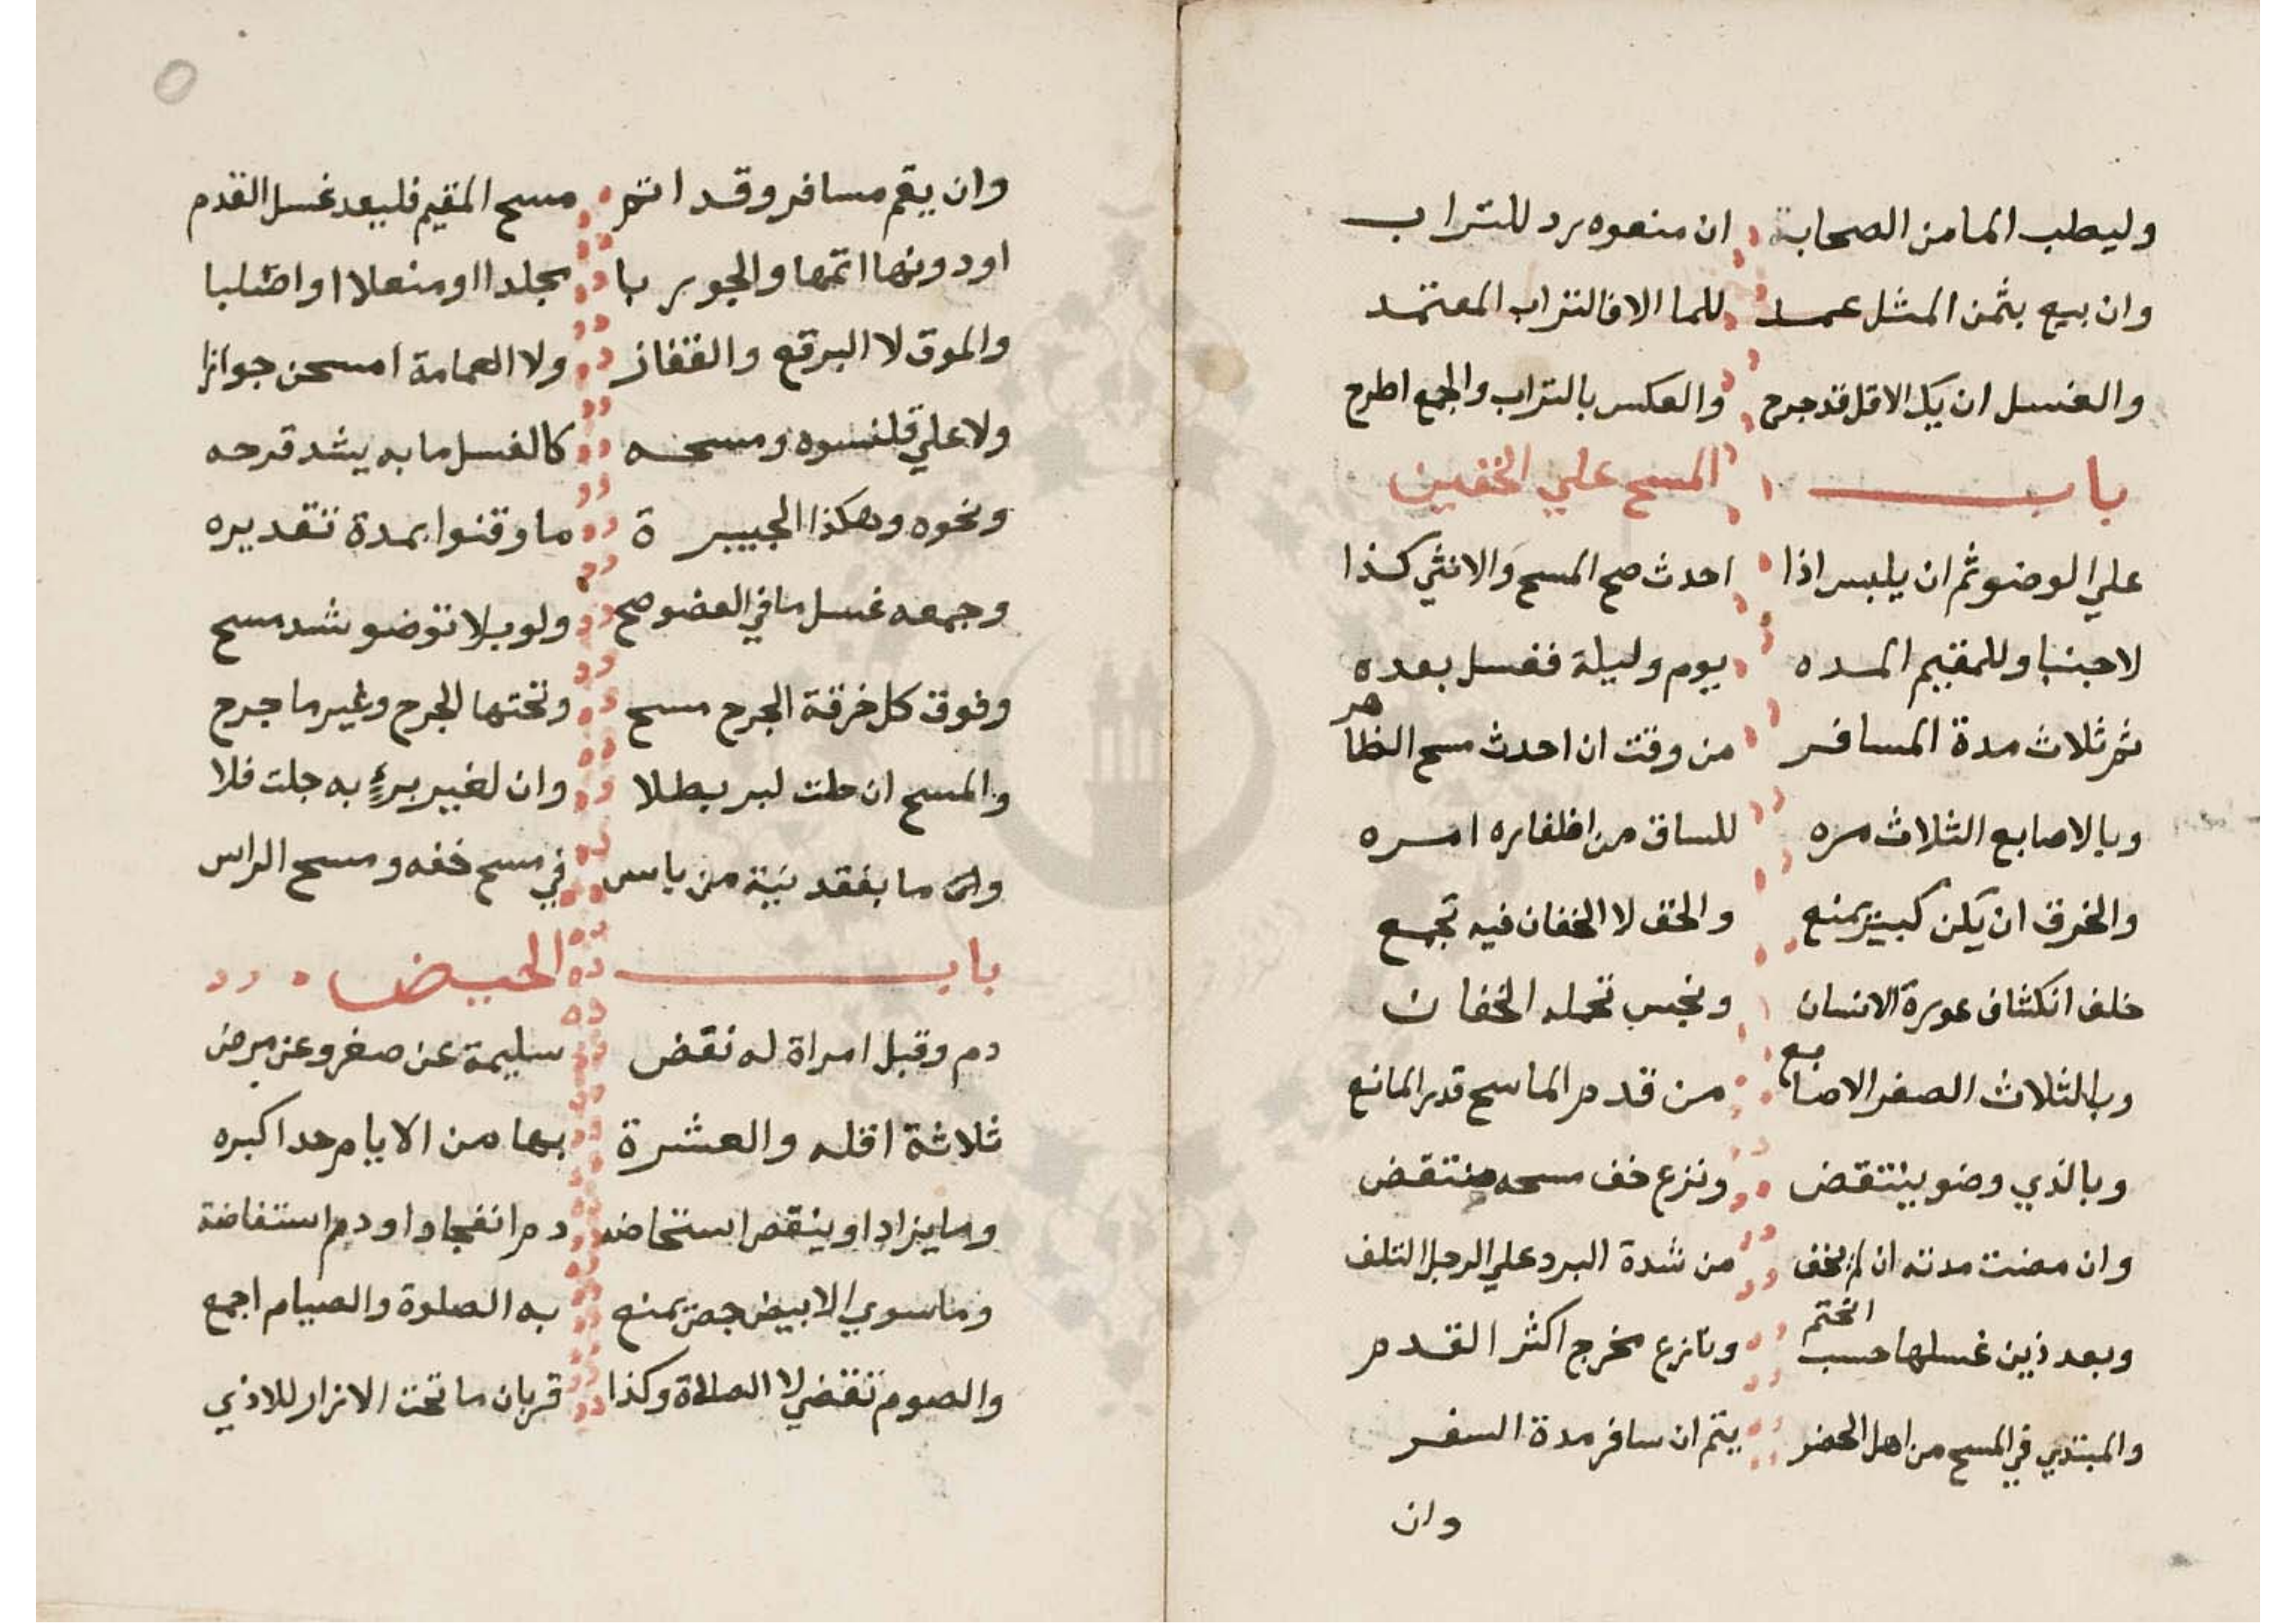 وليطلب الما من الصحابة ان منعوه برد للتراب
وان بيع بثمن المثل عمد للما الا فالتراب المعتمد
والغسل ان يك الاقل قد جرح والعكس بالتراب والجمع اطرح
باب المسح علي الخفين
علي الوضو ثم ان يلبس اذا احدث صح المسح والانثي كذا
لا جنبا وللمقيم المده يوم وليلة فغسل بعده
ثم ثلاث مدة المسافر من وقت ان احدث مسح الظاهر
وبالاصابع الثلاث مره للساق من اظفاره امره
والخرق ان يكن كبير يمنع والخف لا الخفان فيه تجمع
خلف انكشاف عورة الانسان ونجس تحمله الخفان
وبالثلاث الصغر الاصابع من قدم الماسح قدر المانع
وبالذي وضو ينتقض ونزع خف مسحه منتقض
وان مضت مدته ان لم يخف من شدة البرد علي الرجل التلف
وبعد ذين غسلها حسب انحتم ونازع مخرج اكثر القدم
والمبتدي في المسح من اهل الحضر يتم ان سافر مدة السفر
وان
وان يقم مسافر وقد اتم مسح المقيم فليعد غسل القدم
او دونها اتمها والجوربا مجلدا او منعلا او اصلبا
والموق لا البرقع والقفاز ولا العمامة امسحن جوازا
ولا علي قلنسوه ومسحه كالغسل ما به يشد قرحه
ونحوه وهكذا الجبيرة ما وقتوا بمدة تقديره
وجمعه غسل ما في العضو صح ولو بلا توضو شد مسح
وفوق كل خرقة الجرح مسح وتحتها الجرح وغير ما جرح
والمسح ان حلت لبر بطلا وان لغير برء به جلت فلا
وان ما بفقد نية من باس في مسح خفه ومسح الراس
باب الحيض
دم وقبل امراة له نقض سليمة عن صغر وعن مرض
ثلاثة اقله والعشرة بها من الايام حد اكبره
وما يزاد او ينقص استحاضه دم انفجا و او دم استفاضة
وما سوي الابيض حيض يمنع به الصلوة والصيام اجمع
والصوم تقضي لا الصلاة وكذا قربان ما تحت الازار للاذي